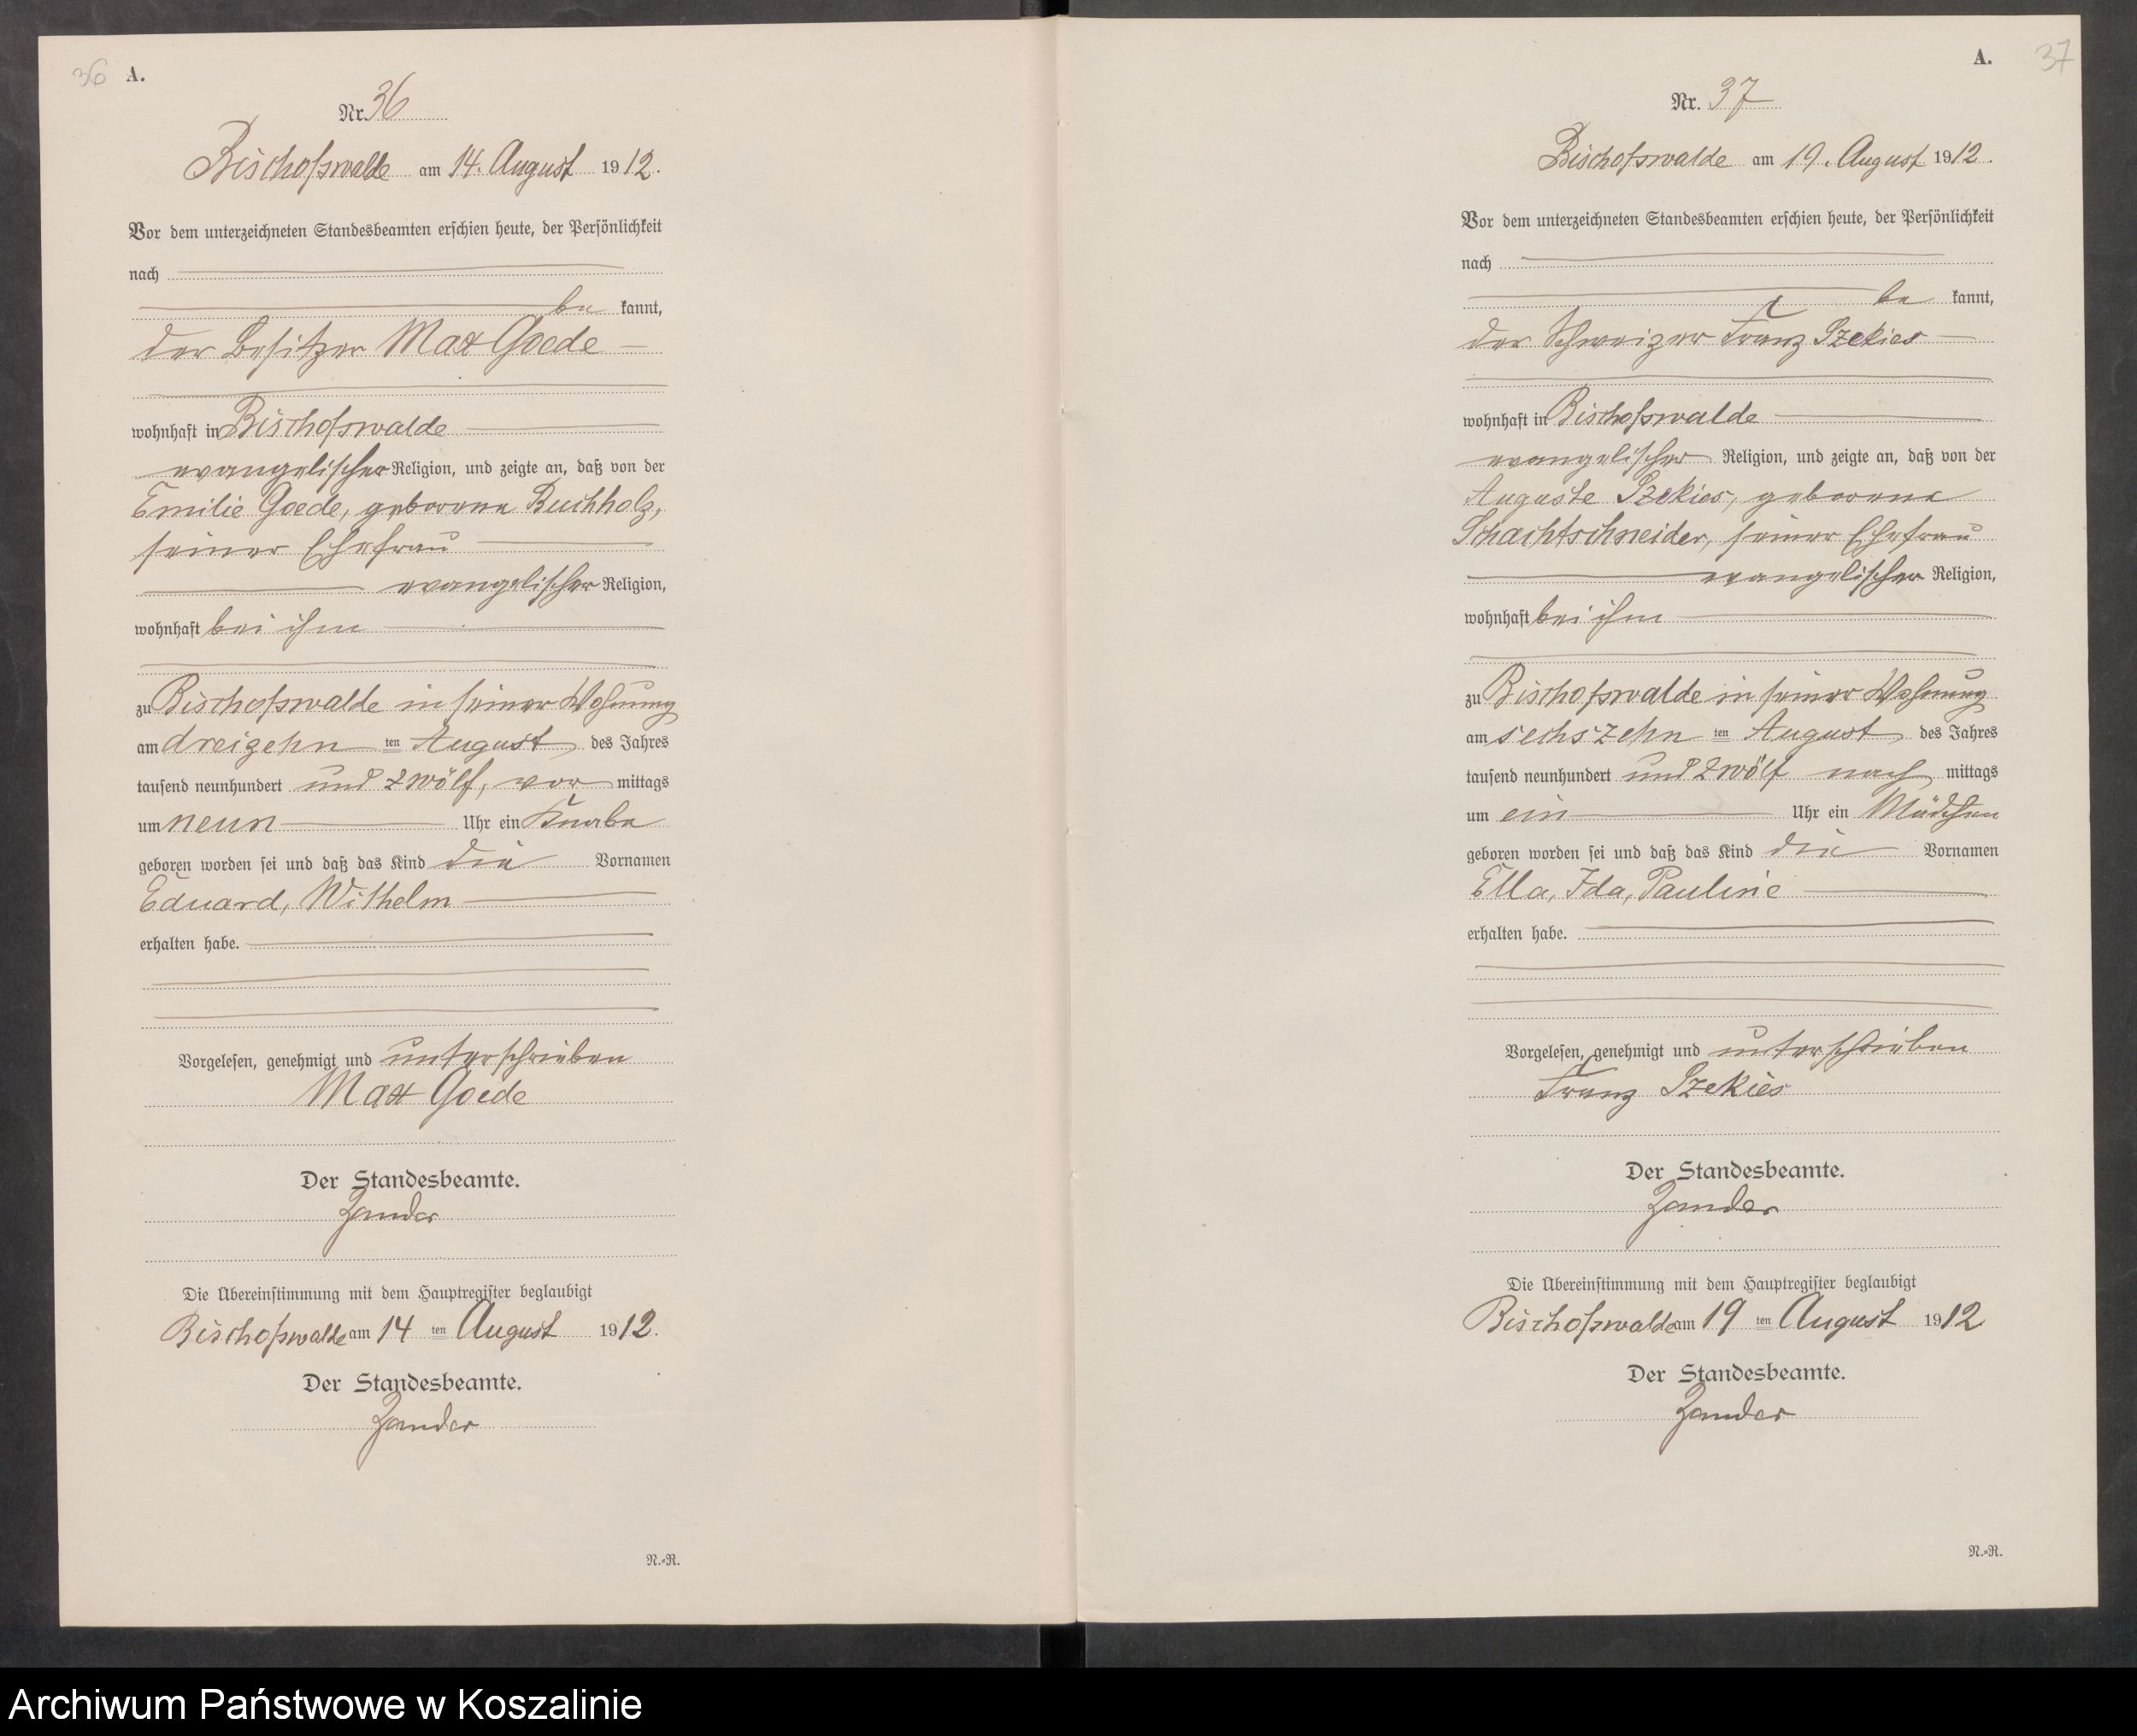 36 A.
Nr. 36
Bischofswalde am 14. August 1912.
Vor dem unterzeichneten Standesbeamten erschien heute, der Persönlichkeit
nach
be kannt,
der Besitzer Max Goede
wohnhaft in Bischofswalde
evangelischer Religion, und zeigte an, daß von der
Emilie Goede, geborene Buchholz,
seiner Ehefrau
evangelischer Religion,
wohnhaft bei ihm
zu Bischofswalde in seiner Wohnung
am dreizehn ten August des Jahres
tausend neunhundert und zwölf, vor mittags
um neun Uhr ein Knabe
geboren worden sei und daß das Kind die Vornamen
Eduard, Wilhelm
erhalten habe.
Vorgelesen, genehmigt und unterschrieben
Max Goede
Der Standesbeamte.
Zander
Die Übereinstimmung mit dem Hauptregister beglaubigt
Bischofswalde am 14 ten August 1912.
Der Standesbeamte.
Zander
N.-R.
A. 37
Nr. 37
Bischofswalde am 19. August 1912.
Vor dem unterzeichneten Standesbeamten erschien heute, der Persönlichkeit
nach
be kannt,
der Schweizer Franz Szekies
wohnhaft in Bischofswalde
evangelischer Religion, und zeigte an, daß von der
Auguste Szekies, geborene
Schachtschneider, seiner Ehefrau
evangelischer Religion,
wohnhaft bei ihm
zu Bischofswalde in seiner Wohnung
am sechszehn ten August des Jahres
tausend neunhundert und zwölf nach mittags
um ein Uhr ein Mädchen
geboren worden sei und daß das Kind die Vornamen
Ella, Ida, Pauline
erhalten habe.
Vorgelesen, genehmigt und unterschrieben
Franz Szekies
Der Standesbeamte.
Zander
Die Übereinstimmung mit dem Hauptregister beglaubigt
Bischofswalde am 19 ten August 1912
Der Standesbeamte.
Zander
N.-R.
Archiwum Państwowe w Koszalinie